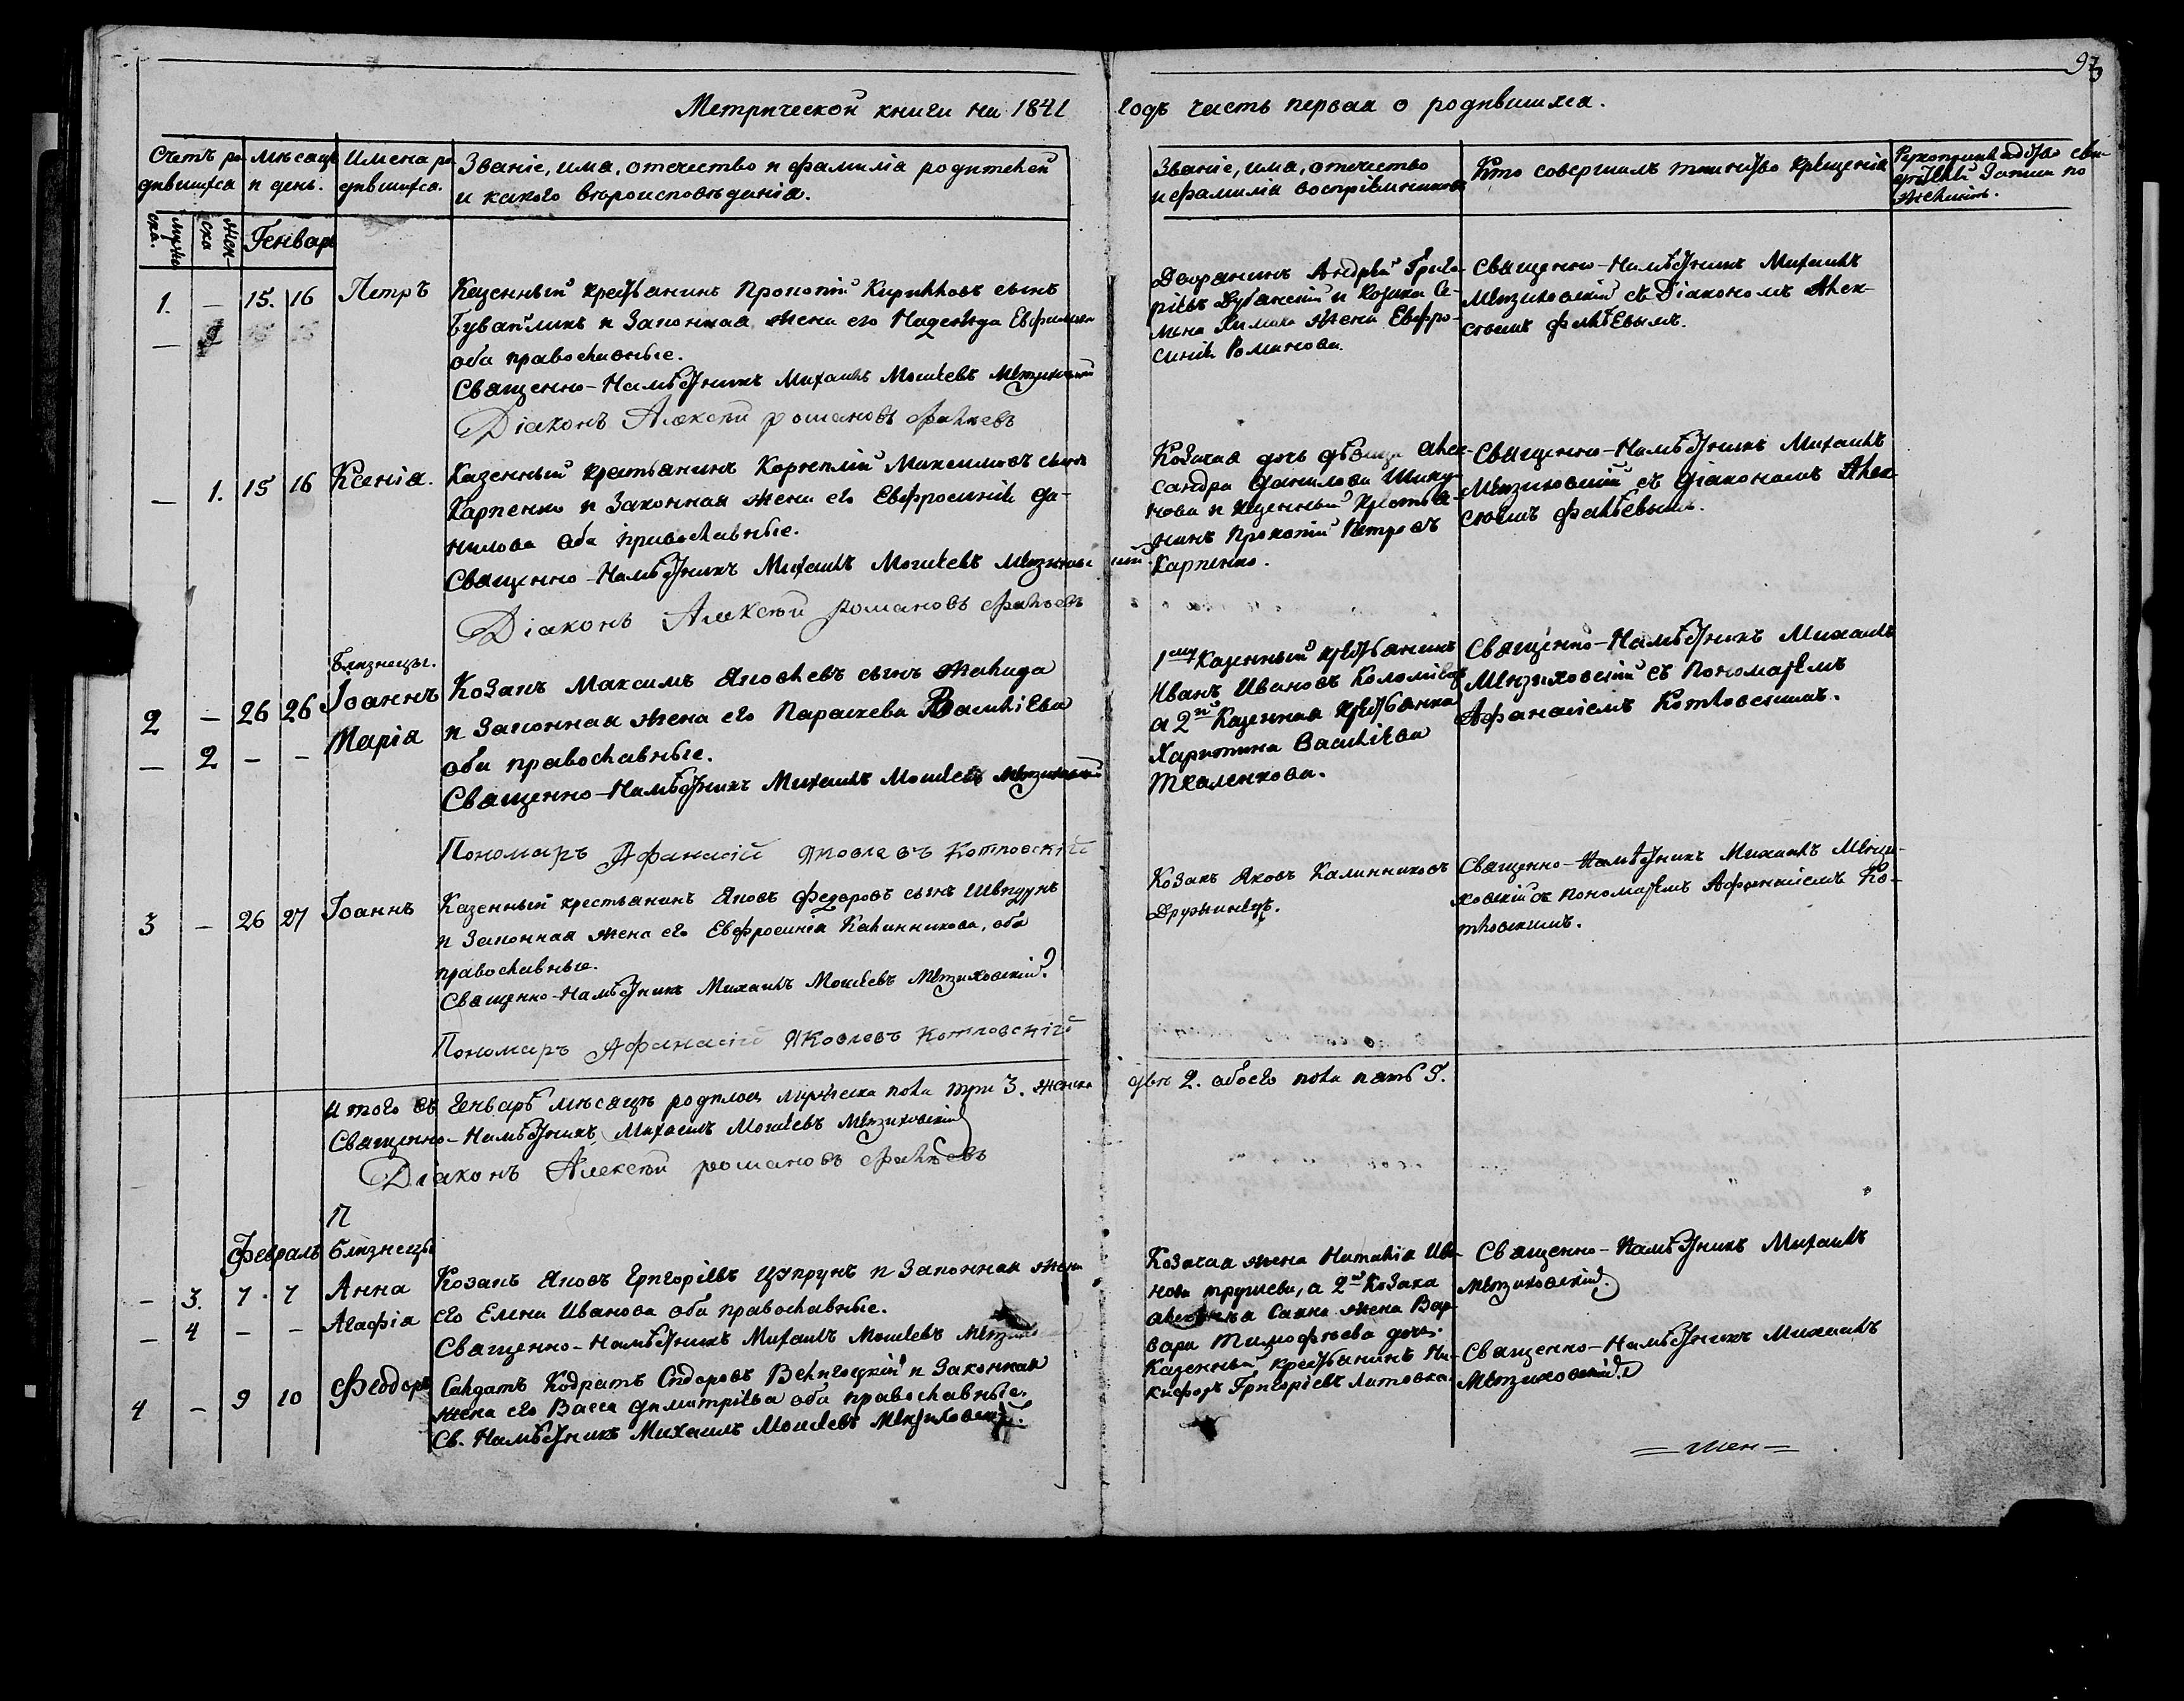 97
Метрической книги на 1841 годъ часть первая о родившихся.
Счетъ ро-
дившихся
Мѣсяцъ
и день.
Имена ро-
дившихся.
Званіе, имя, отечество и фамилія родителей
и какого вѣроисповѣданія.
Званіе, имя, отечество
и фамилія воспріемниковъ
Кто совершилъ таинство крещенія
мужес-
ка.
жен-
ска
Генварь
1. — 15. 16 Петръ
Казенный крестьянинъ Прокопій Кирилловъ сынъ
и Законная жена его Надежда
оба православные.
Священно-Намѣстникъ Михаилъ Моисеевъ
Діаконъ Алексѣй романовъ
Дворянинъ Андрей Григо-
ріевъ и Козака Се-
мена жена Евфро-
синія Романова.
Священно-Намѣстникъ Михаилъ
съ Діакономъ Алек-
сѣемъ
— 1. 15 16 Ксенія.
Казенный крестьянинъ Корнилій Максимовъ сынъ
Карпенко и Законная жена его Евфросинія Да-
нилова оба православные.
Священно-Намѣстникъ Михаилъ Моисеевъ
Діаконъ Алексѣй романовъ
Козачая дочь дѣвица Алек-
сандра Данилова
и казенный крестья-
нинъ Прокопій Петровъ
Карпенко.
Священно-Намѣстникъ Михаилъ
съ Діакономъ Алек-
сѣемъ
Близнецы.
2 — 26 26 Іоаннъ
— 2 — — Марія
Козакъ Максимъ Яковлевъ сынъ
и Законная жена его Параскева Василіева
оба православные.
Священно-Намѣстникъ Михаилъ Моисеевъ
Пономарь Афанасій Яковлевъ Котловскій
1му Казенный крестьянинъ
Иванъ Ивановъ Коломіецъ
а 2й Казенная крестьянка
Харитина Василіева
Ткаленкова.
Священно-Намѣстникъ Михаилъ
съ Пономаремъ
Афанасіемъ Котловскимъ.
3 — 26 27 Іоаннъ
Казенный крестьянинъ Яковъ Федоровъ сынъ Швидунъ
и Законная жена его Евфросинія Калинникова, оба
православные.
Священно-Намѣстникъ Михаилъ Моисеевъ
Пономарь Афанасій Яковлевъ Котловскій
Козакъ Яковъ Калинниковъ
Дружинецъ.
Священно-Намѣстникъ Михаилъ
съ Пономаремъ Афанасіемъ Ко-
тловскимъ.
Итого въ Генварѣ мѣсяцѣ родилось мужеска пола три 3. женска двѣ 2. обоего пола пять 5.
Священно-Намѣстникъ Михаилъ Моисеевъ
Діаконъ Алексѣй романовъ
П
Февраль
Близнецы
— 3. 7. 7 Анна
— 4 — — Агафія
Козакъ Яковъ Григоріевъ Цюпрунъ и Законная жена
его Елена Иванова оба православные.
Священно-Намѣстникъ Михаилъ Моисеевъ
Козачая жена Наталія Ива-
нова а 2й Козака
жена Вар-
вара Тимофѣева дочь.
Священно-Намѣстникъ Михаилъ
4 — 9 10 Феодоръ
Салдатъ Кодратъ Сидоровъ и Законная
жена его Васса Димитріева оба православные.
Св. Намѣстникъ Михаилъ Моисеевъ
Казенный крестьянинъ Ни-
кифоръ Григоріевъ Литовка.
Священно-Намѣстникъ Михаилъ